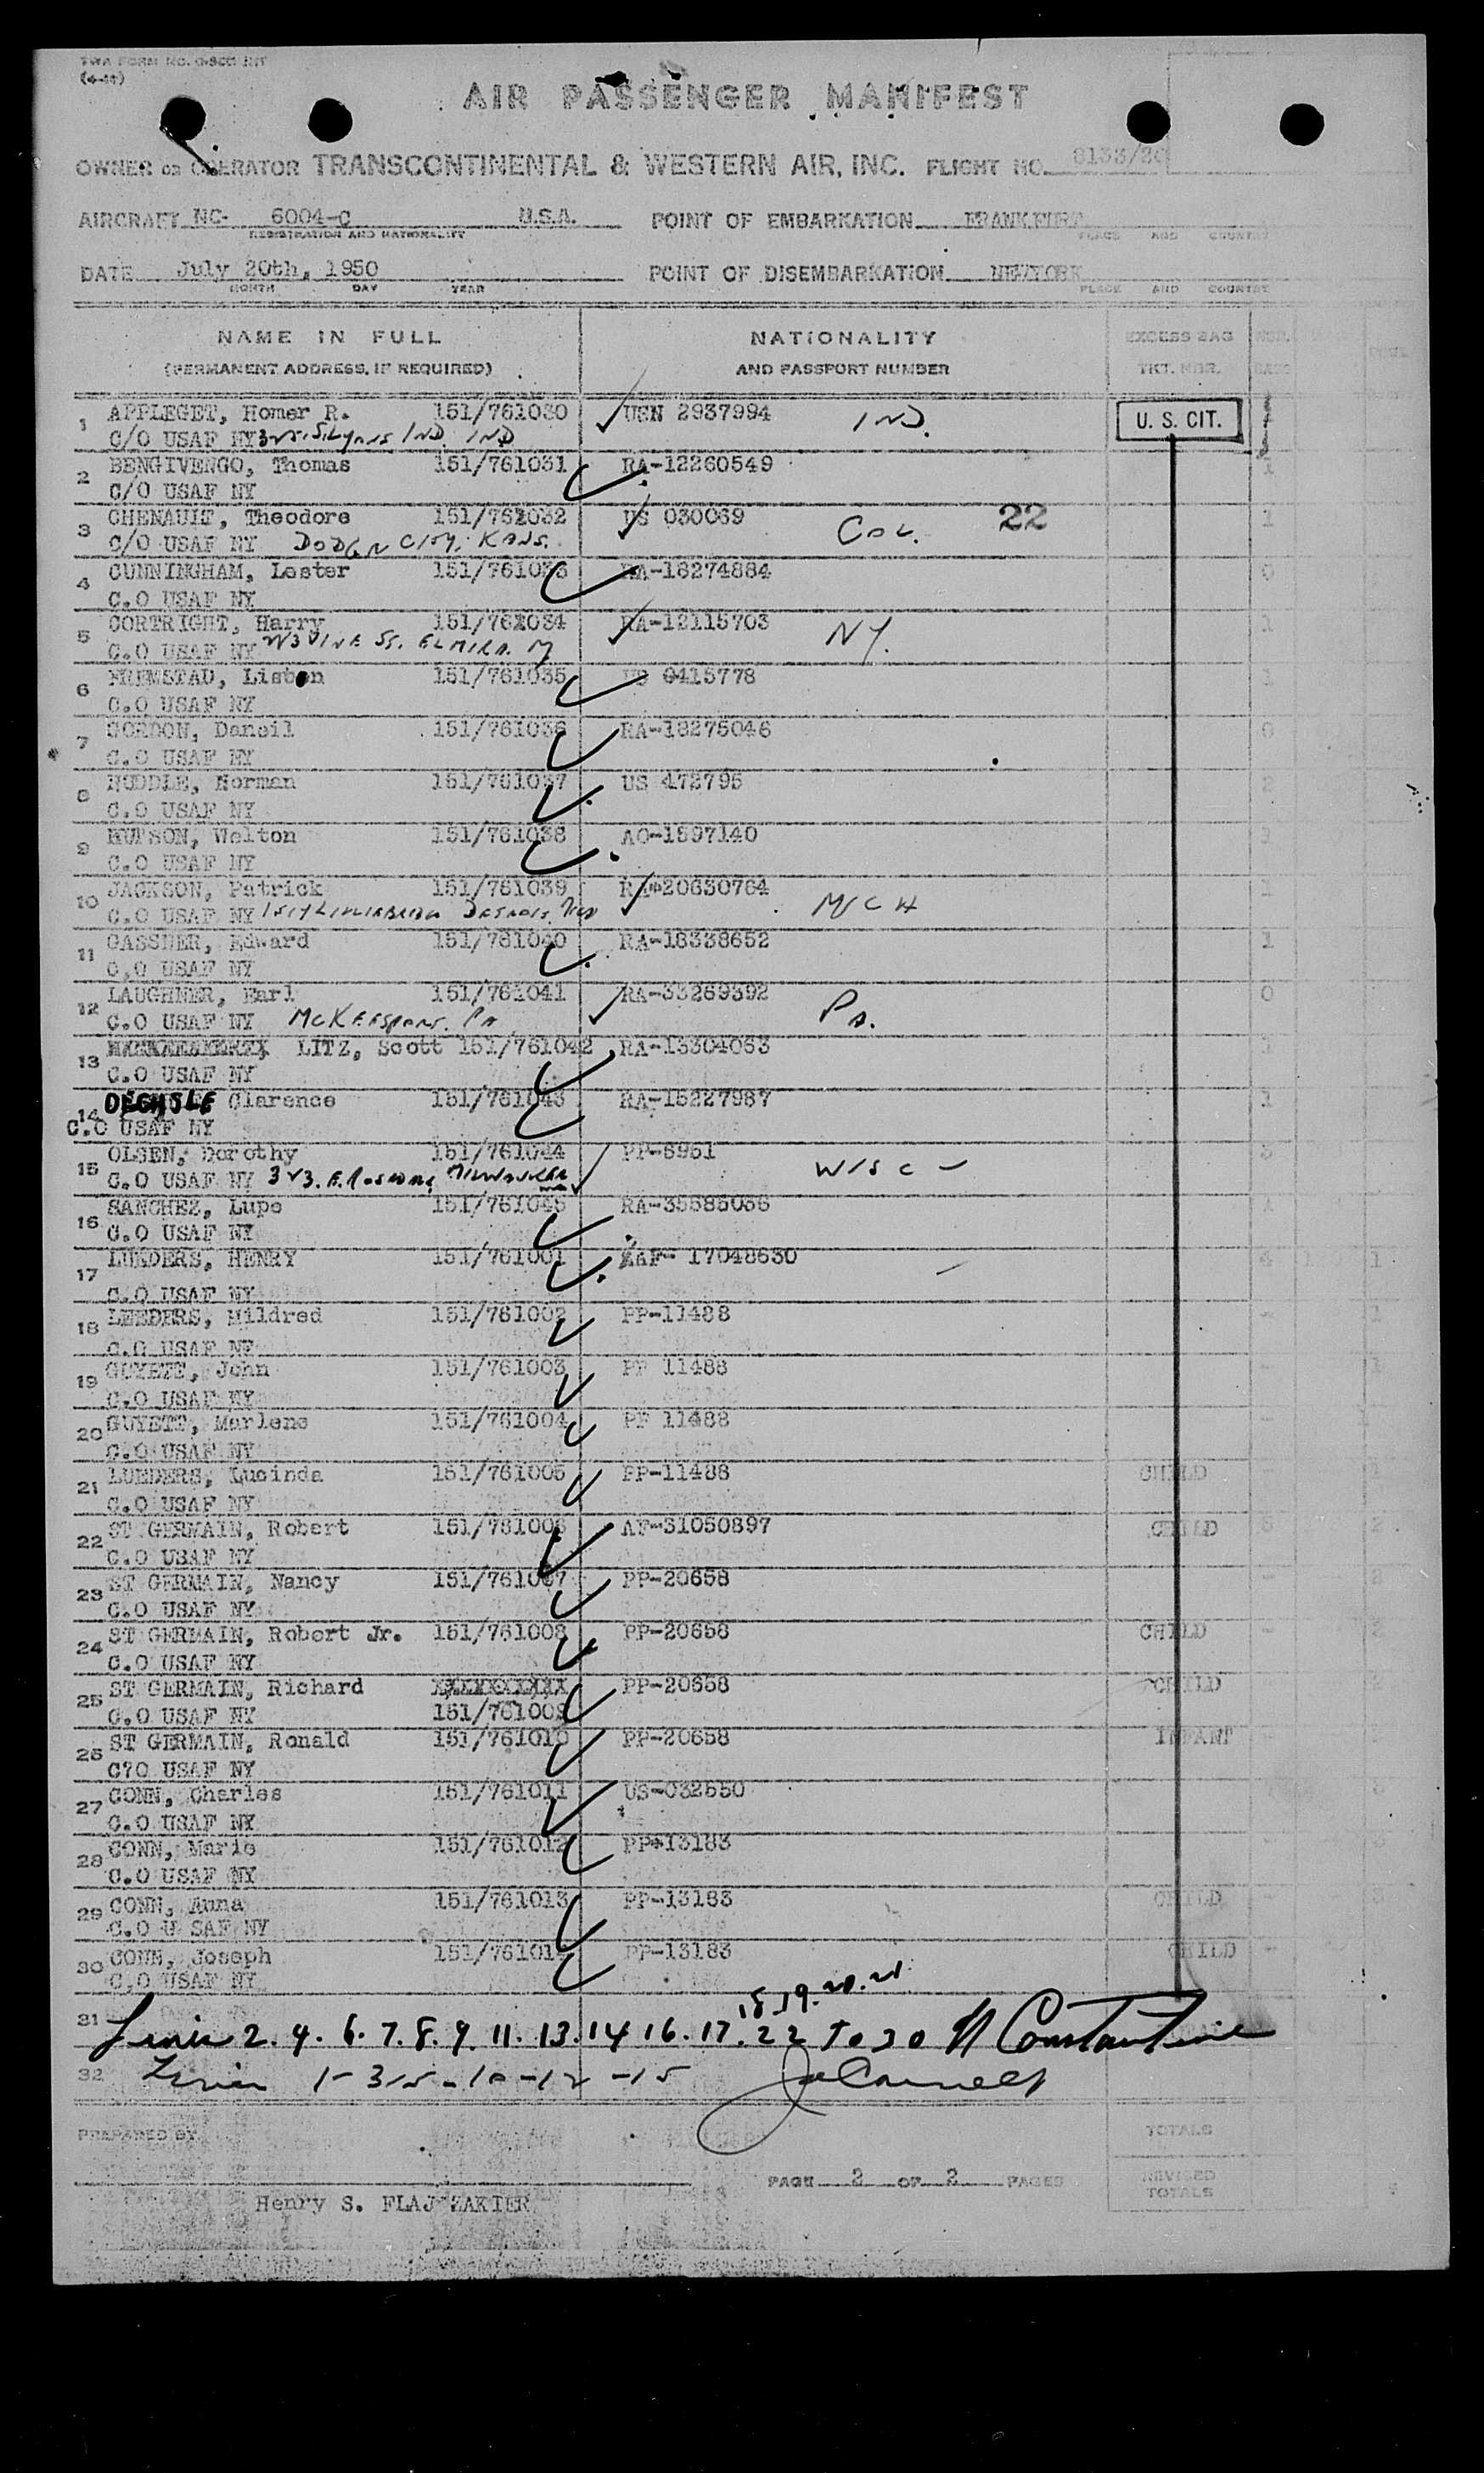 TWA FORM NO.
AIR PASSENGER MANIFEST
OWNER OR OPERATOR TRANSCONTINENTAL & WESTERN AIR, INC. FLIGHT NO. 8133/20
AIRCRAFT NC- 6004-C U.S.A. POINT OF EMBARKATION FRANKFURT
REGISTRATION AND NATIONALITY PLACE AND COUNTRY
DATE July 20th, 1950 POINT OF DISEMBARKATION NEWYORK
MONTH DAY YEAR PLACE AND COUNTRY
NAME IN FULL NATIONALITY EXCESS BAG
(PERMANENT ADDRESS, IF REQUIRED) AND PASSPORT NUMBER TKT. NBR.
1 APPLEGET, Homer R. 151/761030 USN 2937994 IND. U. S. CIT.
C/O USAF NY IND. IND
2 BENGIVENGO, Thomas 151/761031 RA-12260549 1
C/O USAF NY
3 CHENAULT, Theodore 151/761032 US 030039 COL. 22 1
C/O USAF NY DODGE CITY, KANS.
4 CUNNINGHAM, Lester 151/761033 RA-18274884 0
C.O USAF NY
5 CORTRIGHT, Harry 151/761034 RA-12115703 NY. 1
C.O USAF NY VINE ST. ELMIRA. NY
6 FREMSTAD, Liston 151/761035 US 0415778 1
C.O USAF NY
7 GORDON, Daneil 151/761036 RA-18275046 0
C.O USAF NY
8 HUDDLE, Norman 151/761037 US 472795 2
C.O USAF NY
9 HUTSON, Welton 151/761038 AO-1597140 1
C.O USAF NY
10 JACKSON, Patrick 151/761039 RA-20630764 MICH 1
C.O USAF NY
11 GASSNER, Edward 151/761040 RA-18338652 1
C.O USAF NY
12 LAUGHNER, Earl 151/761041 RA-33269392 Pa. 0
C.O USAF NY McKeesport. Pa
13 LITZ, Scott 151/761042 RA-13304063 1
C.O USAF NY
14 Clarence 151/761043 RA-15227987 1
C.O USAF NY
15 OLSEN, Dorothy 151/761044 PP-6951 WISC - 3
C.O USAF NY 323. E. MILWAUKEE
16 SANCHEZ, Lupe 151/761045 RA-35585056
C.O USAF NY
17 LUEDERS, HENRY 151/761001 17048630 4 1
C.O USAF NY
18 LUEDERS, Mildred 151/761002 PP-11488 - 1
C.O USAF NY
19 GUYETT, John 151/761003 PP 11488 - 1
C.O USAF NY
20 GUYETT, Marlene 151/761004 PP 11488
C.O USAF NY
21 LUEDERS, Lucinda 151/761005 PP-11488 CHILD
C.O USAF NY
22 ST GERMAIN, Robert 151/761006 AF-31050897 CHILD 2
C.O USAF NY
23 ST GERMAIN, Nancy 151/761007 PP-20658 - 2
C.O USAF NY
24 ST GERMAIN, Robert Jr. 151/761008 PP-20658 CHILD - 2
C.O USAF NY
25 ST GERMAIN, Richard XXXXXXXXXX PP-20658 CHILD
C.O USAF NY 151/761009
26 ST GERMAIN, Ronald 151/761010 PP-20658 INFANT
C?O USAF NY
27 CONN, Charles 151/761011 US-032550
C.O USAF NY
28 CONN, Marie 151/761012 PP-13183
C.O USAF NY
29 CONN, Anna 151/761013 PP-13183 CHILD
C.O U SAF NY
30 CONN, Joseph 151/76101 PP-13183 CHILD -
C.O USAF NY
18. 19. 20. 21.
31 2. 4. 6. 7. 8. 9. 11. 13. 14 16. 17. 22 To 30 N Constantine
32 1-3-5-10-12-15
PREPARED BY TOTALS
PAGE 2 OF 2 PAGES REVISED TOTALS
Henry S. FLAJ ZAKIER